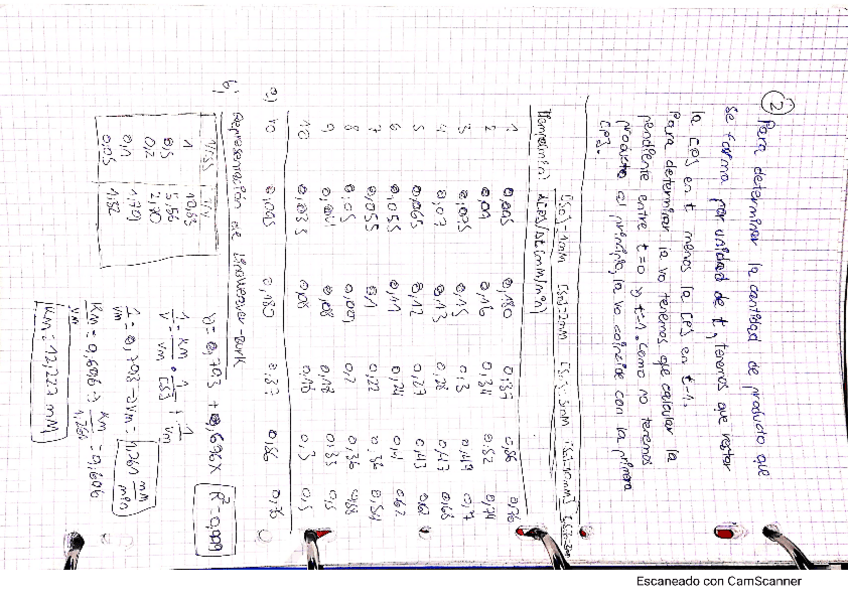 ② Para determinar la cantidad de producto que
se forma por unidad de t, tenemos que restar
la [P] en t menos la [P] en t-1.
Para determinar la vo tenemos que calcular la
pendiente entre t=0 y t=1. Como no tenemos
producto al principio, la vo coincide con la primera
[P].
[S0]=1mM [S0]=2mM [S]=5mM [S]=10mM
Tiempo(min) Δ[P]/Δt (mM/min)
1 0,095 0,180 0,37 0,56 0,76
2 0,09 0,16 0,34 0,52 0,74
3 0,075 0,15 0,3 0,49 0,7
4 0,07 0,13 0,28 0,47 0,68
5 0,065 0,12 0,27 0,43
6 0,055 0,11 0,24 0,4 0,62
7 0,055 0,1 0,22 0,54
8 0,05 0,2 0,36
9 0,08 0,18 0,35 0,5
10 0,035 0,08 0,16 0,3 0,5
a) v0 0,095 0,180 0,37 0,56 0,76
b) Representación de Lineweaver-Burk
1/[S] 1/v
1 10,53
0,5 5,56
0,2 2,70
0,1 1,79
0,05 1,32
R² = 0,999
1/v = Km/Vm · 1/[S] + 1/Vm
Km = 12,227 mM
Escaneado con CamScanner